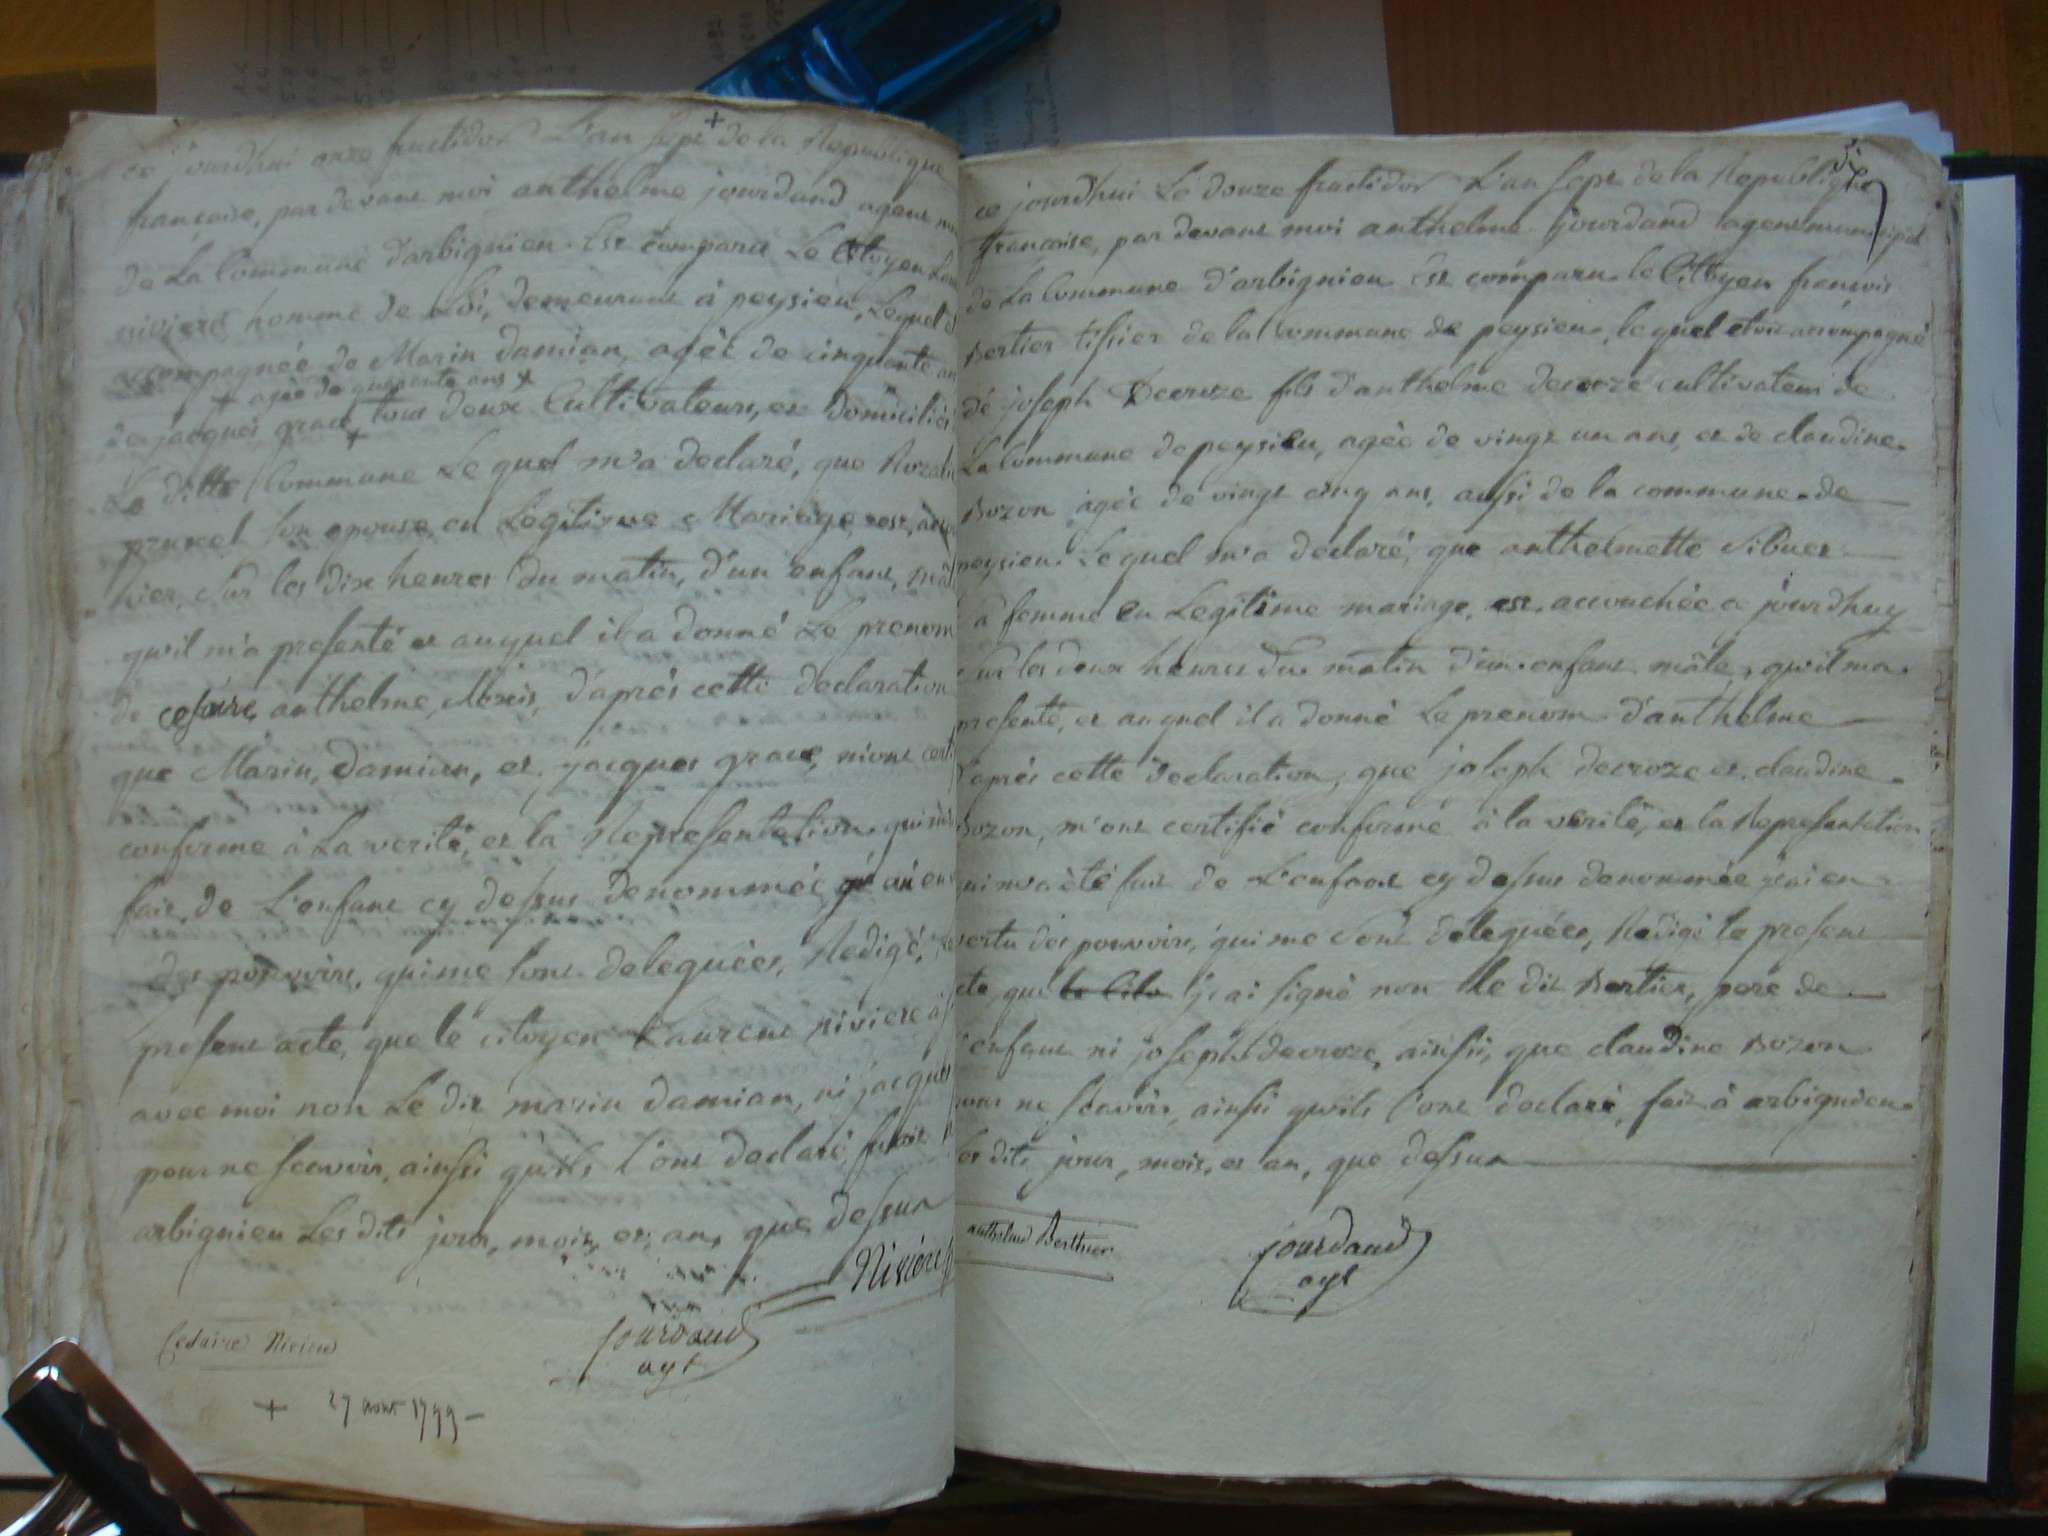 ce jourdhui onze fructidor L'an sept de la Republique
française, par devant moi anthelme jourdand agent
de La Commune d'arbignieu Est comparu Le Citoyen
riviere homme de Loi, demeurant à peysieu, Lequel
accompagnée de Marin damian, agèe de cinquante an
+ agée de quarente ans +
& jacques grace tous deux Cultivateurs, et domiciliés
Le ditte Commune Le quel m'a declaré, que
prunel son epouse en Legitime Mariage est
hier, sur les dix heures du matin, d'un enfant,
qu'il m'a presenté et auquel il a donné Le prenom
de cesaire, anthelme, d'après cette declaration
que Marin, damian, et jacques grace, m'ont
conforme à La verité, et la Representation, qui
fait de L'enfant cy dessus denommée, j'ai en
des pouvoirs, qui me sont deleguées, Redigé, Le
present acte, que le citoyen Laurent riviere a
avec moi non Le dit marin damian, ni jacques
pour ne scavoir, ainssi qu'ils l'ont declaré fait
arbignieu Les dits jour, mois, et, an, que dessus
Rivière
jourdand
agt
Cesaire Riviere
+ 27 aout 1799 –
ce jourdhui Le douze fructidor L'an sept de la Republique
française, par devant moi anthelme jourdand agent municipal
de La Commune d'arbignieu Est comparu le Citoyen francois
Bertier tissier de la commune de peysieu, le quel etoit accompagné
de joseph Decroze fils d'anthelme decroze cultivateur de
La Commune de peysieu, agèe de vingt un ans, et de claudine
Bozon agèe de vingt cinq ans, aussi de la commune de
peysieu Lequel m'a declaré, que anthelmette Sibuet
sa femme en Legitime mariage, est accouchée ce jourdhuy
sur les deux heures du matin d'un enfant mâle, qu'il m'a
presenté, et auquel il a donné Le prenom d'anthelme
d'après cette declaration, que joseph decroze et claudine
Bozon, m'ont certifié conforme à la verité, et la Representation
qui m'a été fait de L'enfant cy dessus denommée j'ai en
vertu des pouvoirs, qui me sont deleguées, Redigé le present
acte, que le Cito j'ai signé non le dit Bertier, pere de
l'enfant ni joseph decroze, ainssi, que claudine Bozon
pour ne scavoir, ainssi qu'ils l'ont declaré, fait à arbignieu
les dits jour, mois, et an, que dessus
anthelme Berthier
jourdand
agt